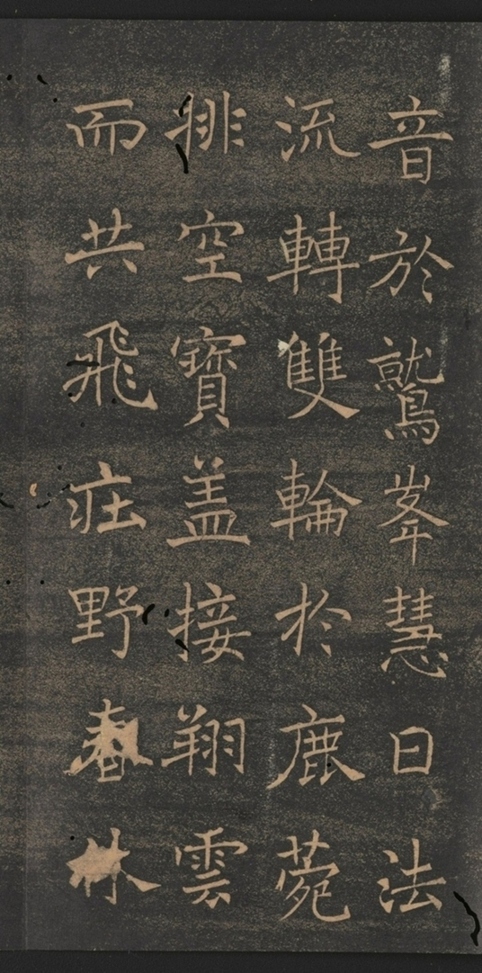 音於鷲峯慧日法
流轉雙輪於鹿菀
排空寶盖接翔雲
而共飛庄野春林